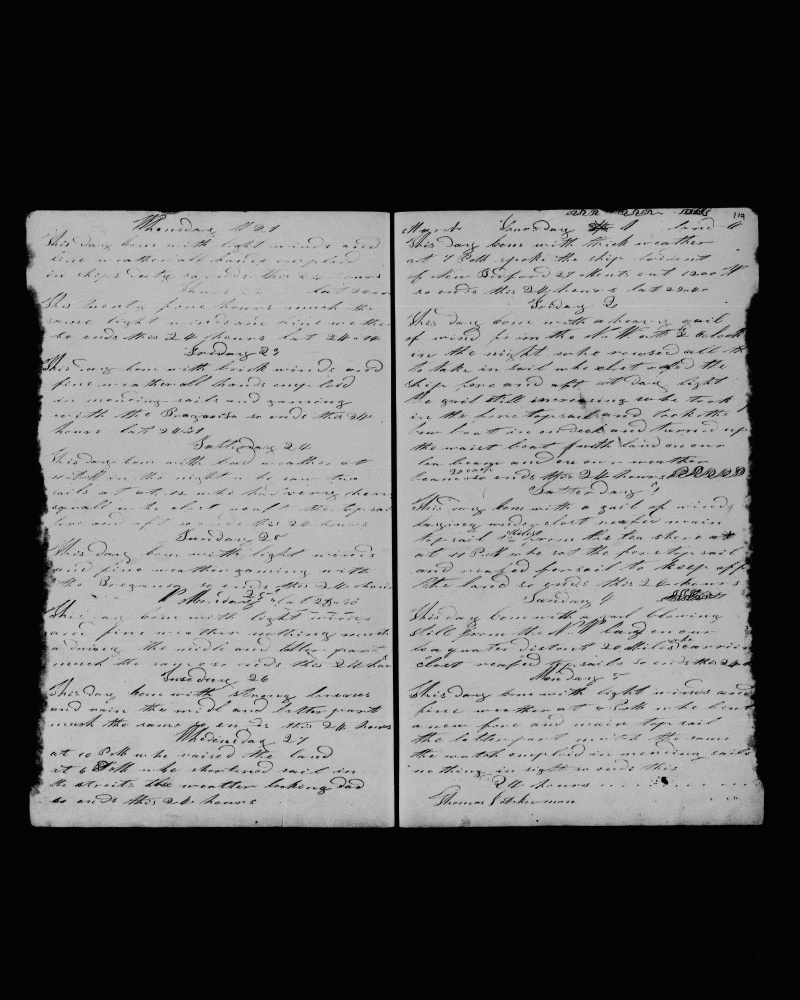 Wensday 21
This day com with light winds and
fine weather all hands emploid
in ships duty so ends this 24 hours
Thurs 22 lat
This twenty fore hours much the
same light winds an fine wether
so ends this 24 hours lat 24=14
Friday 23
This day com with brisk winds and
fine weather all hands emploid
in mending sails and gaming
with the Braganza so ends this 24
hours lat 24=31
Satterday 24
This day com with bad weather at
in the night whe saw two
sails at at 12 whe had very heavy
squall whe clost reaft the topsail
fore and aft so ends this 24 hours
Sunday 25
This day com with light winds
and fine weather gaming with
the Braganza so ends this 24 hours
Monday 25 lat
This day com with light winds
and fine weather nothing much
a during the midle and latter part
much the same so ends this 24 hours
Tuesday 26
This day com with strong breases
and rain the midl and latter part
much the same so ends this 24 hours
Whedensday 27
at 10 PM whe raised the land
at 6 PM whe shortened sail in
the straits the weather looking bad
so ends this 24 hours
119
Thursday 1 land
This day com with thick weather
at 7 PM spoke the ship
of New Bedford 27 Monts out 1200
so ends this 24 hours lat
Friday 2
This day com with a heavy gail
of wind from the N.W. at 2 Clock
in the night whe roused all
to take in sail whe clost reaft the
ship fore and aft at day light
the gail still increasing whe took
in the fore topsail and took the
bow boat in on deck and turned up
the waist boat with land on our
lea beam and on our weather
so ends this 24 hours
Satterday 3
This day com with a gail of wind
laying under clost reafed main
topsail from the lea shore at
at 10 PM whe set the fore topsail
and reafed forsail to keep off
the land so ends this 24 hours
Sunday 4
This day com with a gail blowing
still from the N.W. land on our
lea quater distant 20 Miles carrien
clost reafed topsails so ends this 24
Monday 5
This day com with light winds and
fine weather at 4 PM whe bent
a new fore and main topsail
the latter part much the same
the watch emploid in mending sails
nothing in sight so ends this
24 hours
Thomas